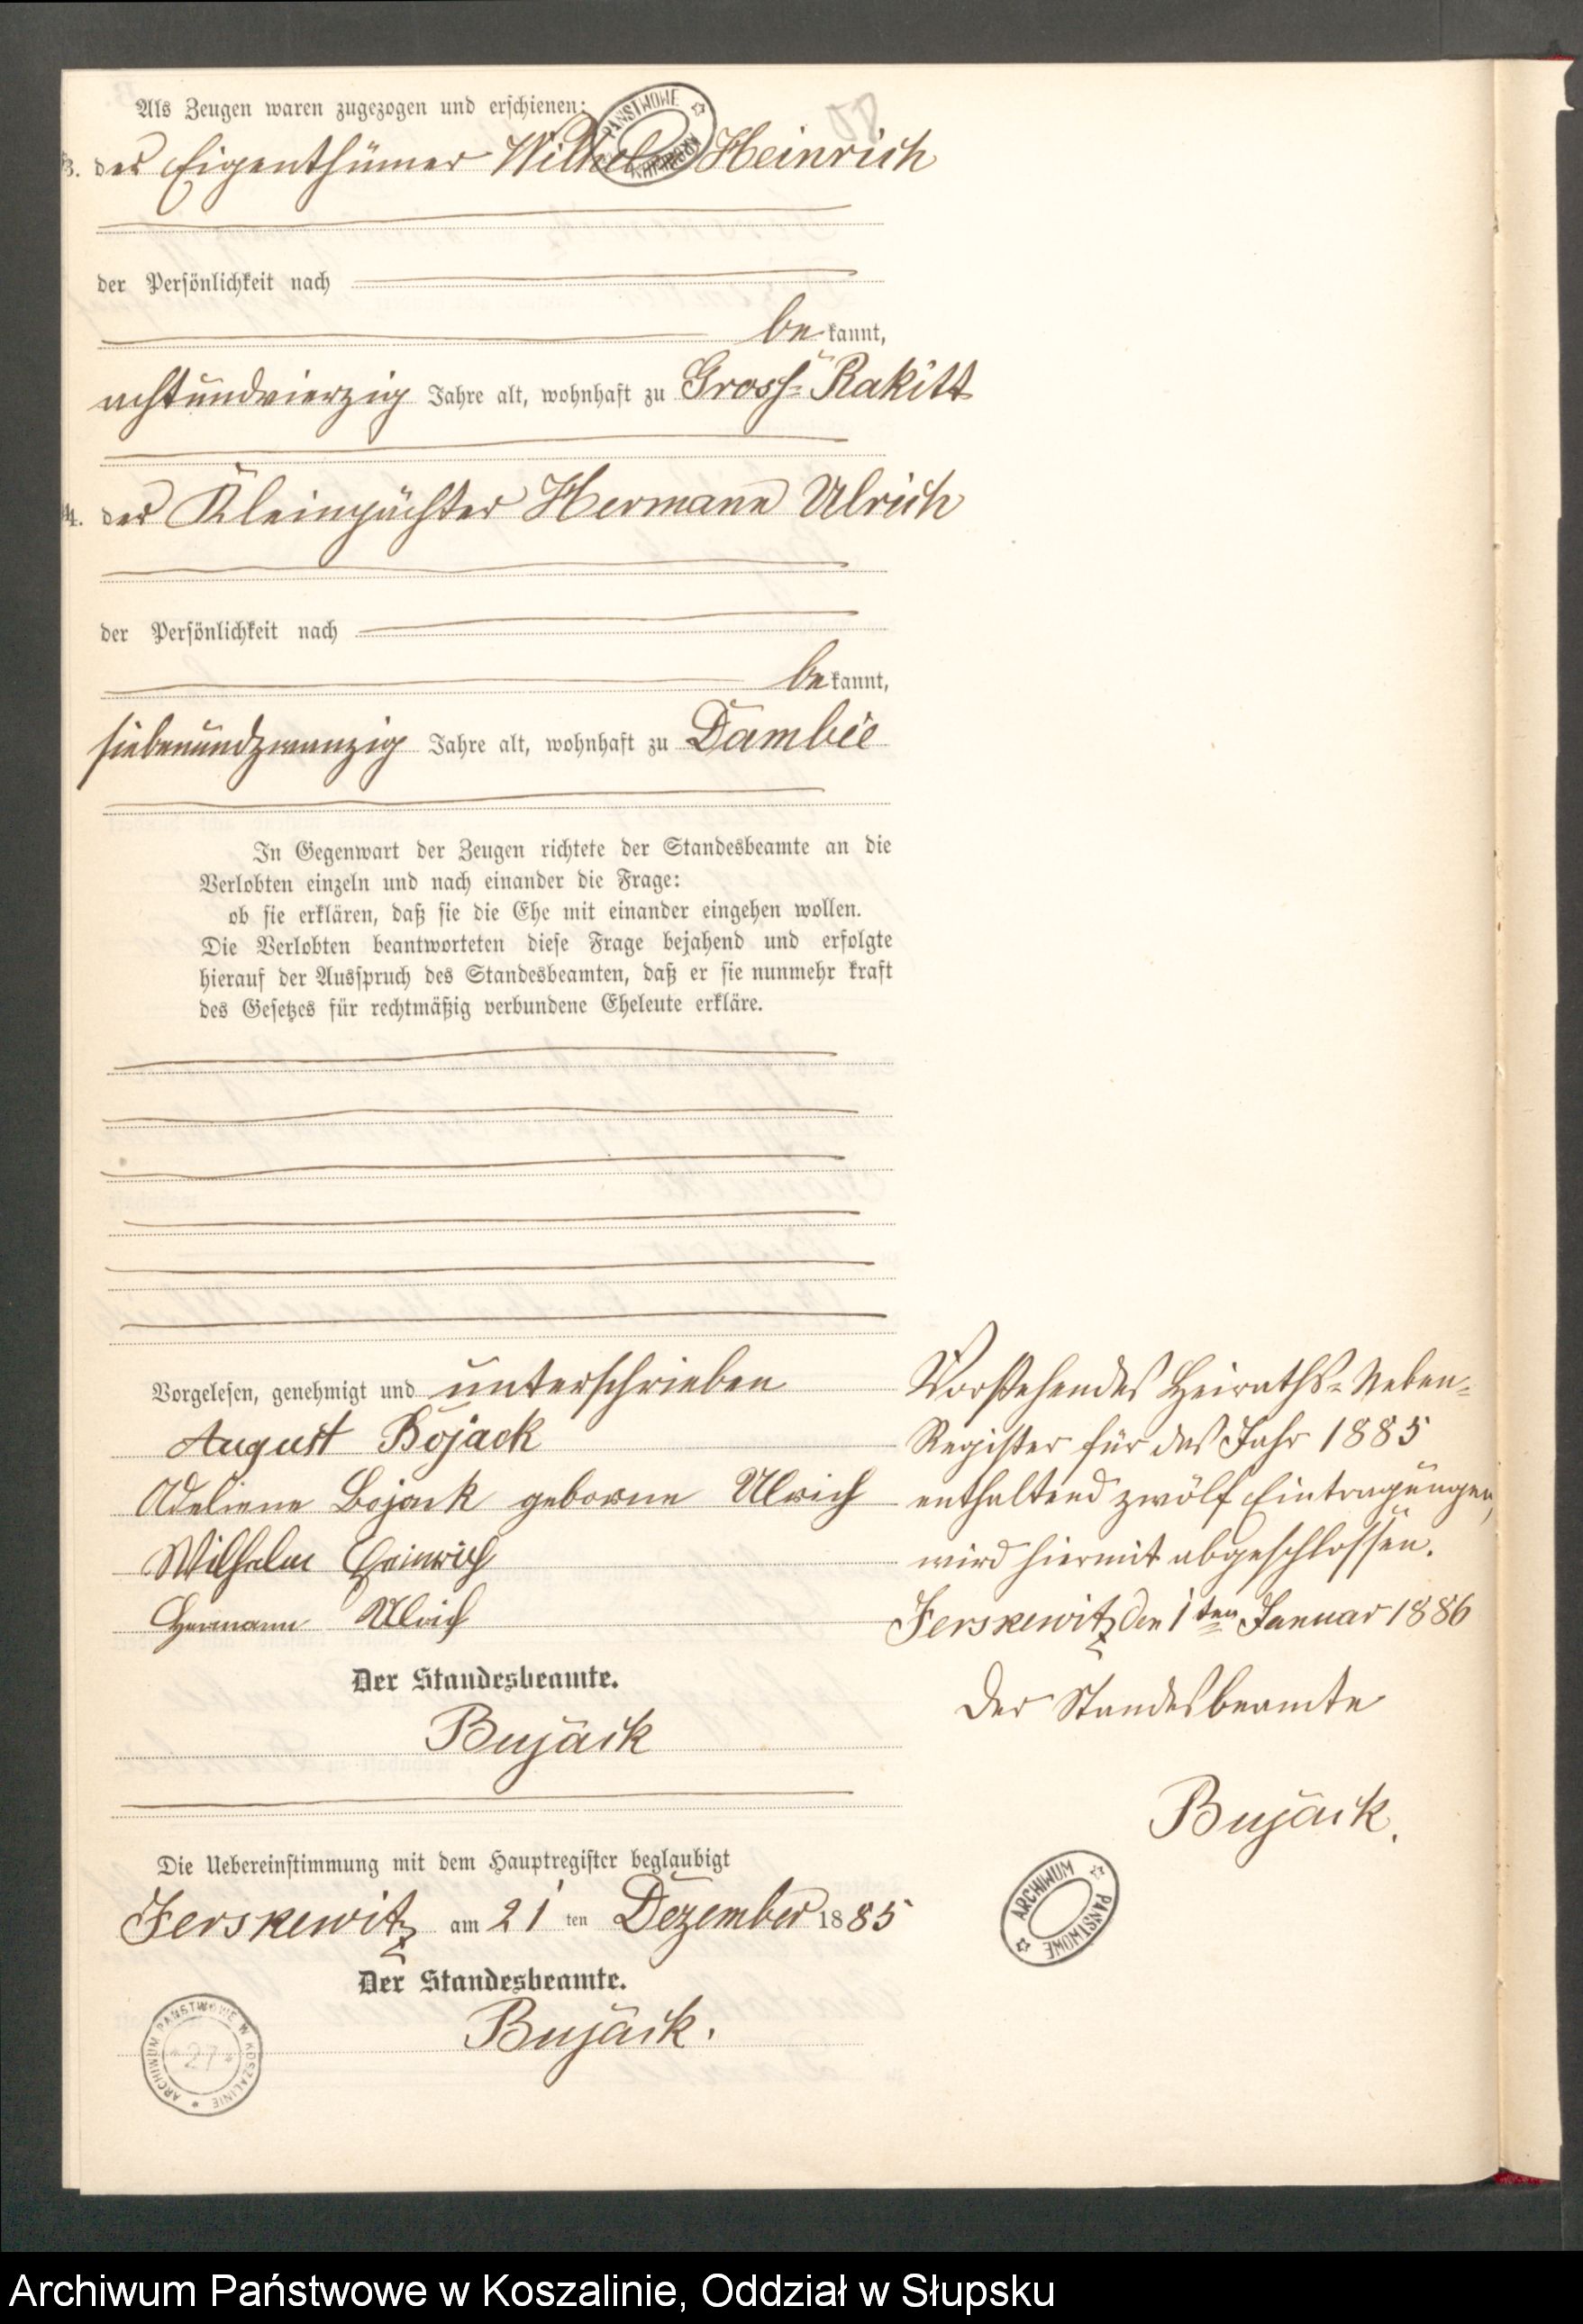 Als Zeugen waren zugezogen und erschienen:
3. der Eigenthümer Wilhelm Heinrich
der Persönlichkeit nach
be kannt,
achtundvierzig Jahre alt, wohnhaft zu Gross-Rakitt
4. der Kleinpächter Hermann Ulrich
der Persönlichkeit nach
be kannt,
siebenundzwanzig Jahre alt, wohnhaft zu Dambee
In Gegenwart der Zeugen richtete der Standesbeamte an die
Verlobten einzeln und nach einander die Frage:
ob sie erklären, daß sie die Ehe mit einander eingehen wollen.
Die Verlobten beantworteten diese Frage bejahend und erfolgte
hierauf der Ausspruch des Standesbeamten, daß er sie nunmehr kraft
des Gesetzes für rechtmäßig verbundene Eheleute erkläre.
Vorgelesen, genehmigt und unterschrieben
August Bojack
Adeliene Bojack geborne Ulrich
Wilhelm Heinrich
Hermann Ulrich
Der Standesbeamte.
Bujack
Die Uebereinstimmung mit dem Hauptregister beglaubigt
Jerskewitz am 21 ten Dezember 1885
Der Standesbeamte.
Bujack.
Vorstehendes Heiraths-Neben-
Register für das Jahr 1885
enthaltend zwölf Eintragungen,
wird hiermit abgeschlossen.
Jerskewitz den 1ten Januar 1886
Der Standesbeamte
Bujack.
ARCHIWUM PAŃSTWOWE
ARCHIWUM PAŃSTWOWE W KOSZALINIE
* 27 *
Archiwum Państwowe w Koszalinie, Oddział w Słupsku